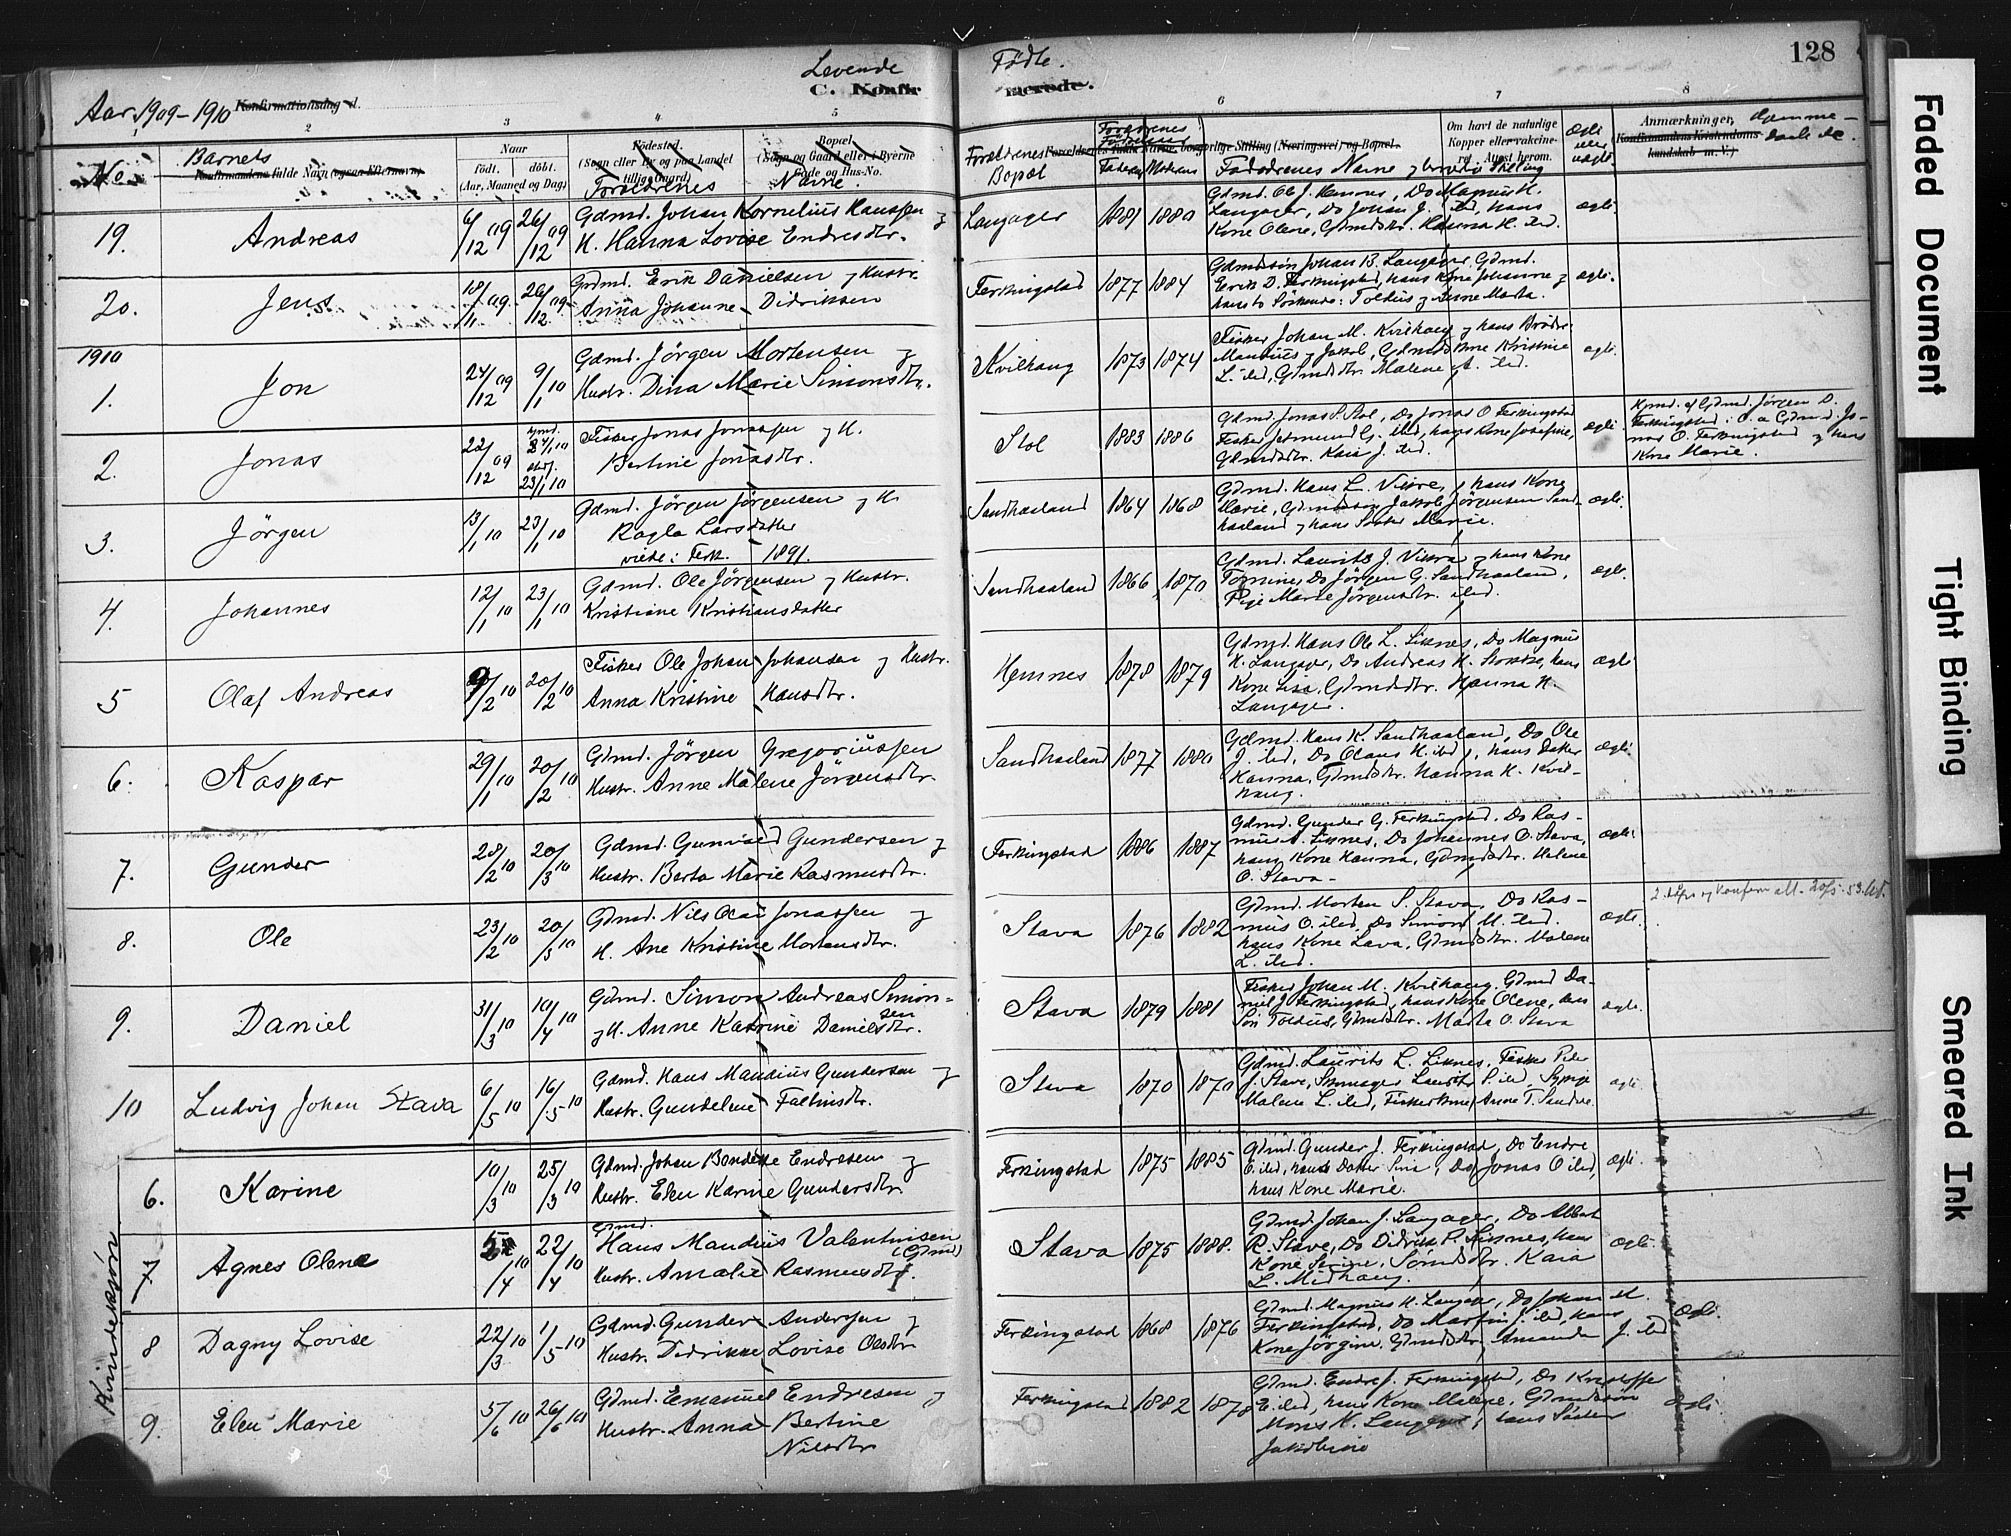 128
Levende Fødte.
C. Konfirmerede.
Aar 1909-1910 Konfirmationsdag d.
2 3 4 5 6 7 8
No.
Barnets
Konfirmandens fulde Navn (ogsaa Efternavn)
Naar
født. døbt.
(Aar, Maaned og Dag)
Fødested.
(Sogn eller By og paa Landet tillige Gaard)
Bopæl.
(Sogn og Gaard eller i Byerne Gade og Hus-No.
Forældrenes Navne.
Forældrenes Bopæl
Forældrenes Fødselsaar
Faderens Moderens
Forældrenes fulde Navne, borgerlige Stilling (Næringsvei) og Bopæl.
Faddrenes Navne
Om havt de naturlige Kopper eller vaccineret. Attest herom.
Ægte eller uægte
Anmærkninger,
Konfirmandens Kristendomskundskab m. V.)
19. Andreas 6/12 09 26/12 09
Gdmd. Johan Kornelius Hanssen og
H. Hanna Lovise Endresdtr.
Langager 1881 1880
Gdmd. Ole J. Hemnes, Do Magnus H.
Langager, Do Johan J. ibd, hans
Kone Olene, Gdmdsdtr. Hanna H. ibd.
ægte.
20. Jens 18/11 09 26/12 09
Gdmd. Erik Danielsen og Hustr.
Anna Johanne Didriksen
Ferkingstad 1877 1884
Gdmdssøn Johan B. Langager, Gdmd.
Erik D. Ferkingstad, hans Kone Johanne og
hans to Søskende: Toldius og Anne Marta.
ægte.
1910
1. Jon 24/12 09 9/1 10
Gdmd. Jörgen Mortensen og
Hustr. Dina Marie Simonsdtr.
Kvilhaug 1873 1874
Fisker Johan M. Kvilhaug og hans Brödre
Mandius og Jakob, Gdmds Kone Kristine
L. ibd, Gdmdsdtr. Malene M. ibd.
ægte.
2. Jonas 22/12 09 hjmd. 2/1 10 stadf. 23/1 10
Fisker Jonas Jonassen og H.
Bertine Jonasdtr.
Stol 1883 1886
Gdmd. Jonas S. Stol, Do Jonas O Ferkingstad
Fisker Jermund G. ibd, hans Kone Josefine,
Gdmdsdtr. Kaia J. ibd.
ægte
Hjmd. af Gdmd. Jörgen D.
Ferkingstad i O. a Gdmd. Jo-
nas O. Ferkingstad og hans
Kone Marie.
3. Jörgen 13/1 10 23/1 10
Gdmd. Jörgen Jörgensen og H.
Ragla Larsdatter
viede i Ferk. 1891.
Sandhaaland 1864 1868
Gdmd. Hans L. Vikre, hans Kone
Marie, Gdmdssøn Jakob Jörgensen Sand-
haaland og hans Søster Marie.
ægte.
4. Johannes 12/1 10 23/1 10
Gdmd. Ole Jörgensen og Hustr.
Kristiane Kristiansdatter
Sandhaaland 1866 1870
Gdmd. Laurits J. Vikra og hans Kone
Tomine, Do Jörgen G. Sandhaaland,
Pige Marie Jörgensdtr. ibd.
ægte.
5 Olaf Andreas 9/2 10 20/2 10
Fisker Ole Johan Johansen og Hustr.
Anna Kristine Hansdtr.
Hemnes 1878 1879
Gdmd. Hans Ole L. Liknes, Do Magnus
H. Langager, Do Andreas H. Stonse, hans
Kone Lisa, Gdmdsdtr. Hanna H.
Langager.
ægte
6. Kaspar 29/1 10 20/2 10
Gdmd. Jörgen Gregoriussen
Hustr. Anne Malene Jörgensdtr.
Sandhaaland 1877 1880
Gdmd. Hans K. Sandhaaland, Do Ole
J. ibd, Do Olaus H. ibd, hans Datter
Hanna, Gdmdsdtr. Hanna K. Kvil-
haug.
ægte.
7. Gunder 28/2 10 20/3 10
Gdmd. Gunvald Gundersen og
Hustr. Berta Marie Rasmusdtr.
Ferkingstad 1886 1887
Gdmd. Gunder G. Ferkingstad, Do Ras-
mus A. Liknes, Do Johannes O. Stava,
hans Kone Hanna, Gdmdsdtr. Malene
O. Stava.
ægte.
8. Ole 23/2 10 20/3 10
Gdmd. Nils Olai Jonassen og
H. Ane Kristine Mortensdtr.
Stava 1876 1882
Gdmd. Morten S. Stava, Do Ras-
mus O. ibd, Do Simon M. ibd.
hans Kone Lava, Gdmdsdtr. Malene
L. ibd.
ægte.
9. Daniel 31/3 10 10/4 10
Gdmd. Simon Andreas Simon-
sen
og H. Anne Katrine Danielsdtr.
Stava 1879 1881
Fisker Johan M. Kvilhaug, Gdmd Da-
niel J. Ferkingstad, hans Kone Olene, hans
Søn Toldius, Gdmdsdtr. Marta O. Stava
ægte.
10 Ludvig Johan Stava 6/5 10 16/5 10
Gdmd. Hans Mandius Gundersen og
Hustr. Gundeline Faltinsdtr.
Stava 1870 1870
Gdmd. Laurits L. Liknes, Fisker Peder
J. Stave, Skomager Laurits P. ibd, Pige
Malene L. ibd, Fiskerkone Anne T. Sandve.
ægte.
Kvindekjøn
6. Karine 10/3 10 25/3 10
Gdmd. Johan Bendikte Endresen og
Hustr. Elen Karine Gundersdtr
Ferkingstad 1875 1885
Gdmd. Gunder J. Ferkingstad, Do Endre
E. ibd, hans Datter Sina, Do Jonas O ibd,
hans Kone Marie.
ægte.
7 Agnes Olene 5/4 10 22/4 10
Gdmd.
Hans Mandius Valentinsen
(Gdmd)
Hustr. Amalie Rasmusdtr.
Stava 1875 1888.
Gdmd. Johan J. Langager, Do Albert
R. Stave, Do Didrik P. Liknes, hans
Kone Serine, Gdmdsdtr. Kaia
L. Midhaug.
ægte.
8 Dagny Lovise 22/3 10 1/5 10
Gdmd. Gunder Andersen og
Hustr. Didrikke Lovise Olsdtr
Ferkingstad 1868 1876
Gdmd. Magnus H. Langager, Do Johan M.
Ferkingstad, Do Martin J. ibd, hans
Kone Jörgine, Gdmdsdtr. Amanda J. ibd
ægte.
9. Elen Marie 5/6 10 26/6 10
Gdmd. Emanuel Endresen og
Hustr. Anna Bertine
Nilsdtr
Ferkingstad 1882 1878
Gdmd. Endre J. Ferkingstad, Do Kristoffer
E. ibd, hans Kone Malene, Gdmdssøn
Mons K. Langager, hans Søster
Jakobine
ægte
Faded Document
Tight Binding
Smeared Ink